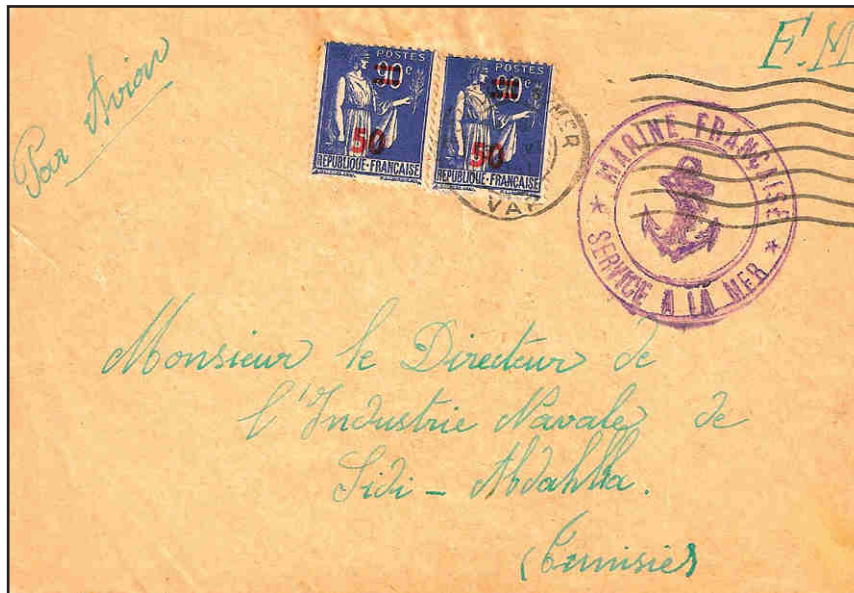 F.M
Par Avion
POSTES
90c
50
REPUBLIQUE·FRANÇAISE
POSTES
90c
50
REPUBLIQUE·FRANÇAISE
MER
VAR
* MARINE FRANÇAISE *
SERVICE A LA MER
Monsieur le Directeur de
l'Industrie Navale de
Sidi - Abdahlla.
(Tunisie)